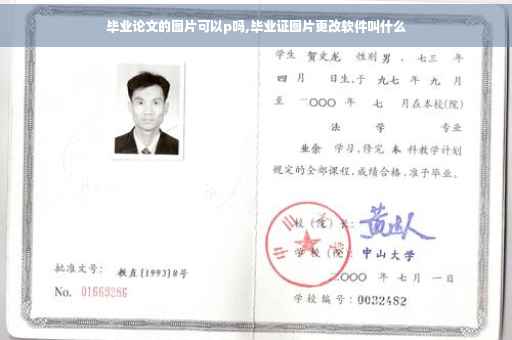 毕业论文的图片可以p吗,毕业证图片更改软件叫什么
学生 贺文龙 性别 男 、七三 年
四 月 日生,于 九七 年 九 月
至 二〇〇〇 年 七 月在本校(院)
法 学 专业
业余 学习,修完 本 科教学计划
规定的全部课程,成绩合格,准予毕业。
校 (院) 长:
学 校 (院): 中山大学
二〇〇〇 年 七 月 一 日
学校编号: 0032482
批准文号: 教直[1993]8号
No. 01669286
中山大学